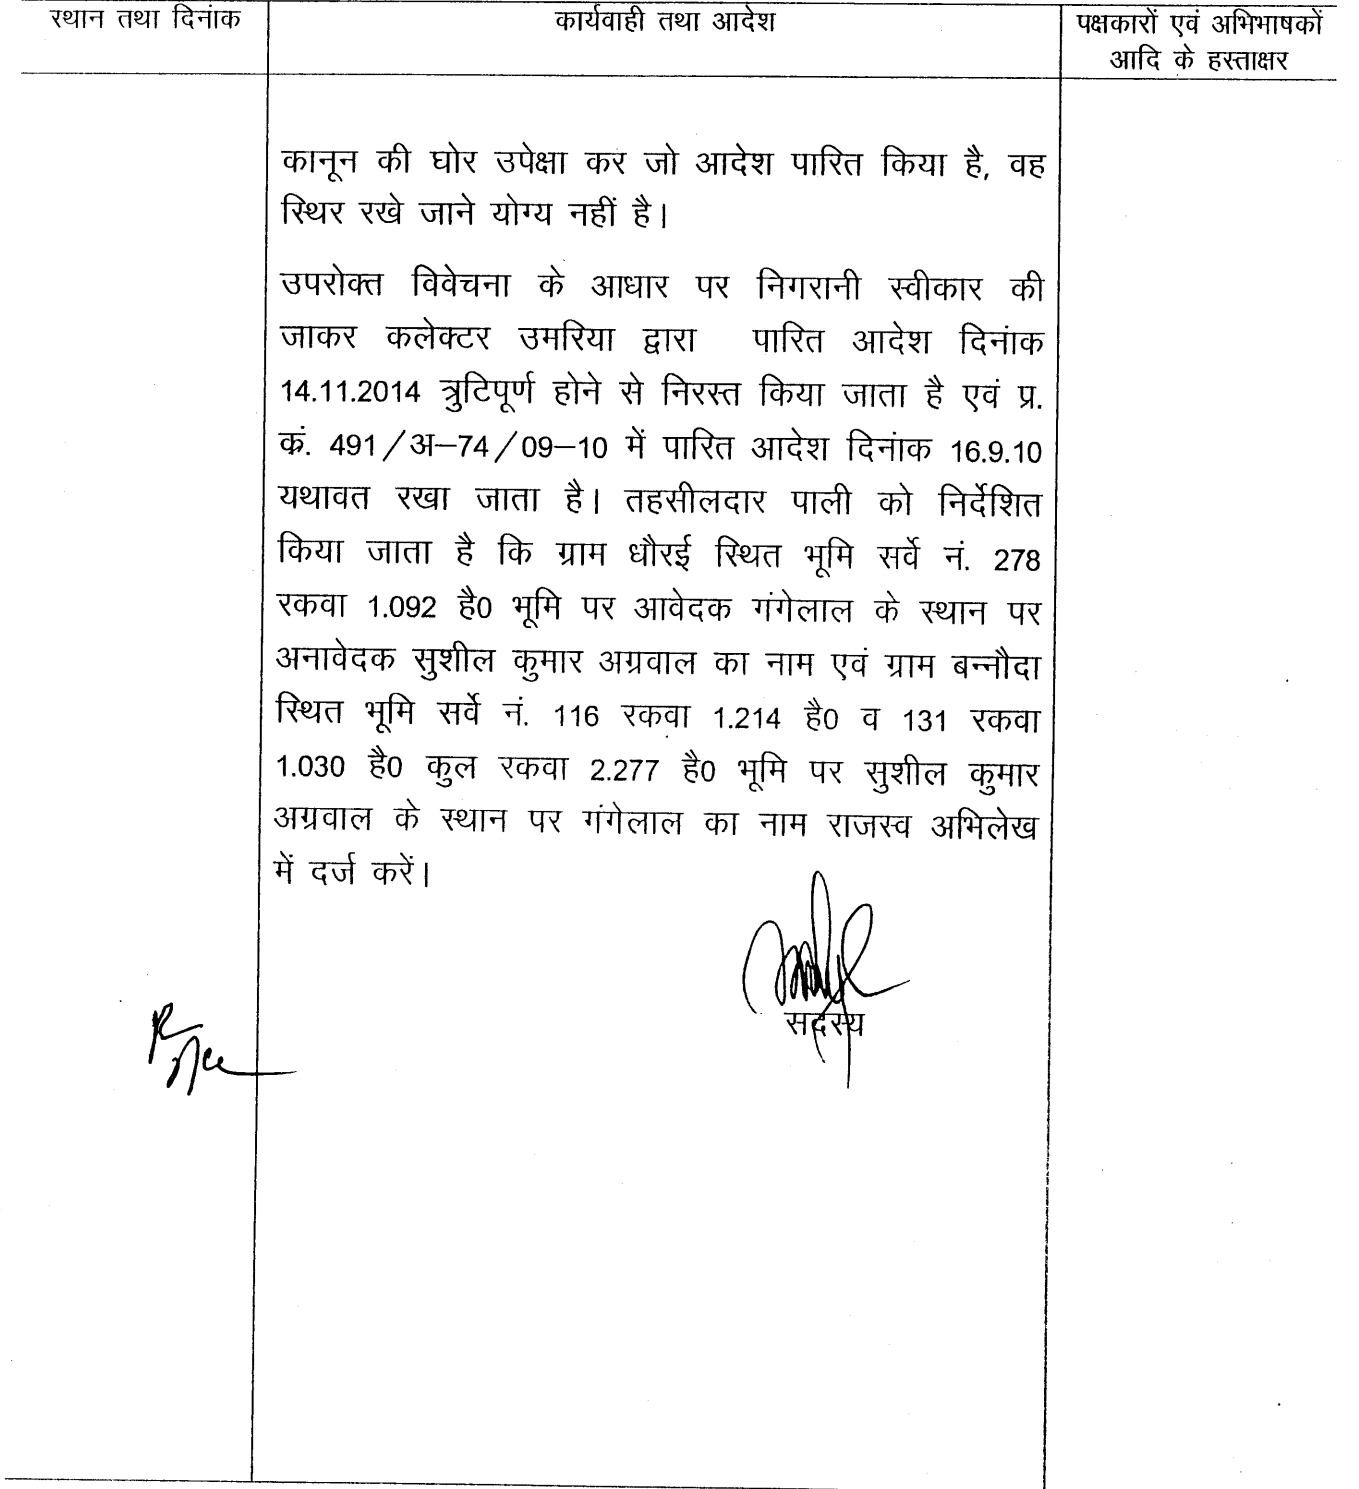 स्थान तथा दिनांक
कार्यवाही तथा आदेश
पक्षकारों एवं अभिभाषकों
आदि के हस्ताक्षर
कानून की घोर उपेक्षा कर जो आदेश पारित किया है, वह
स्थिर रखे जाने योग्य नहीं है।
उपरोक्त विवेचना के आधार पर निगरानी स्वीकार की
जाकर कलेक्टर उमरिया द्वारा पारित आदेश दिनांक
14.11.2014 त्रुटिपूर्ण होने से निरस्त किया जाता है एवं प्र.
कं. 491/अ–74/09–10 में पारित आदेश दिनांक 16.9.10
यथावत रखा जाता है। तहसीलदार पाली को निर्देशित
किया जाता है कि ग्राम धौरई स्थित भूमि सर्वे नं. 278
रकवा 1.092 है0 भूमि पर आवेदक गंगेलाल के स्थान पर
अनावेदक सुशील कुमार अग्रवाल का नाम एवं ग्राम बन्नौदा
स्थित भूमि सर्वे नं. 116 रकवा 1.214 है0 व 131 रकवा
1.030 है0 कुल रकवा 2.277 है0 भूमि पर सुशील कुमार
अग्रवाल के स्थान पर गंगेलाल का नाम राजस्व अभिलेख
में दर्ज करें।
सदस्य